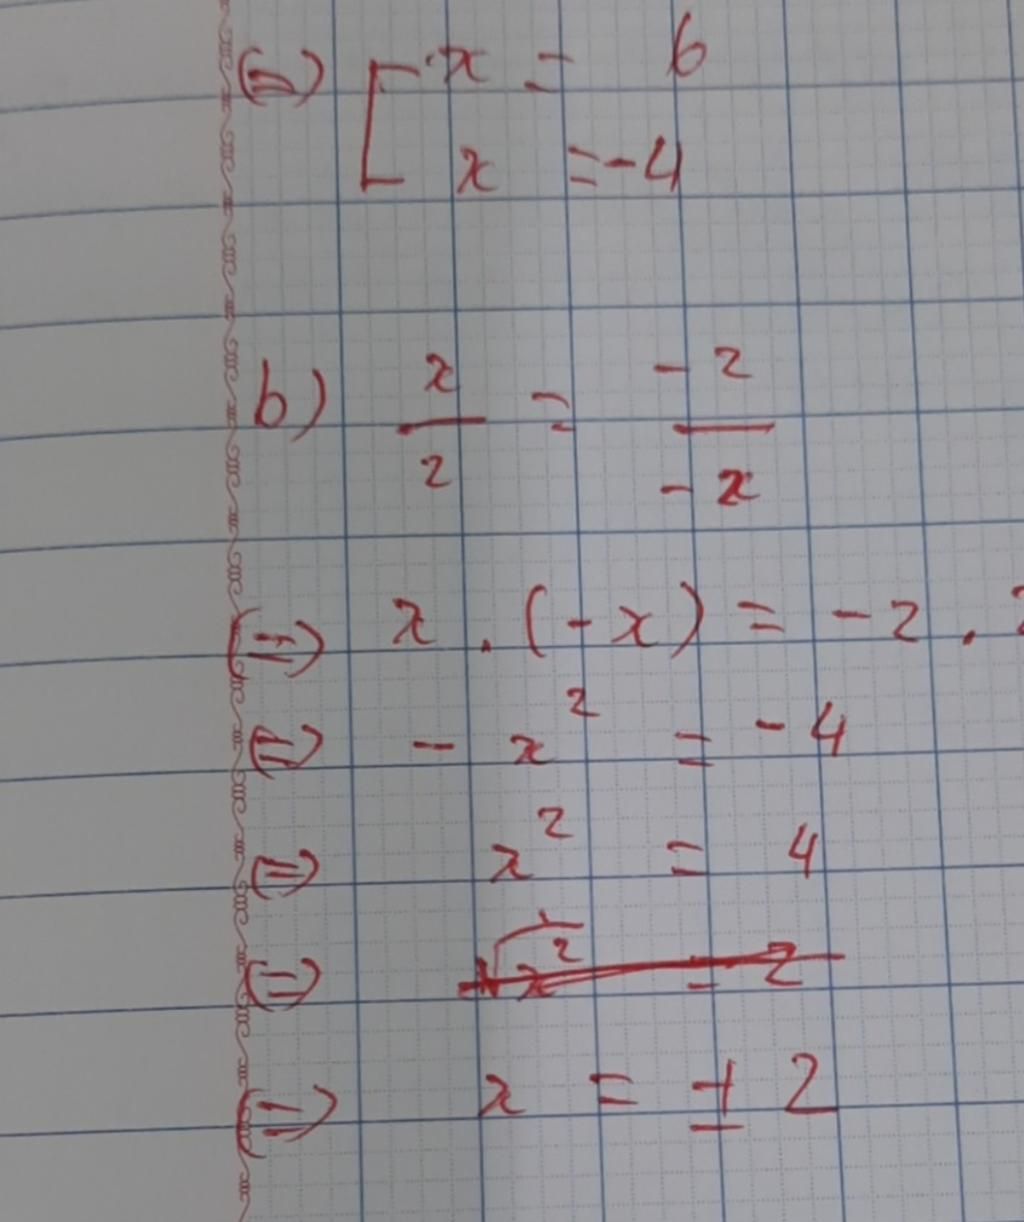 ⇔ [ x = 6
x = -4
b) x/2 = -2/-x
⇔ x . (-x) = -2 .
⇔ - x² = -4
⇔ x² = 4
⇔ √x² = 2
⇔ x = ± 2